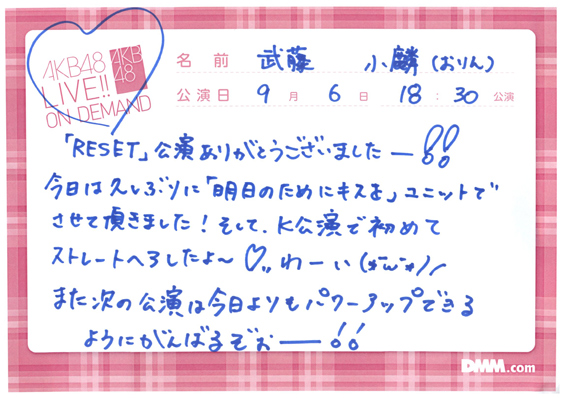 AKB48
LIVE!!
ON DEMAND
AKB
48
名前 武藤 小麟(おりん)
公演日 9月 6日 18:30 公演
「RESET」公演ありがとうございましたー!!
今日は久しぶりに「明日のためにキスを」ユニットで
させて頂きました!そして、K公演で初めて
ストレートヘアしたよ〜♡,, わーい(*˘ω˘*)ノ
また次の公演は今日よりもパワーアップできる
ようにがんばるぞぉー!!
DMM.com